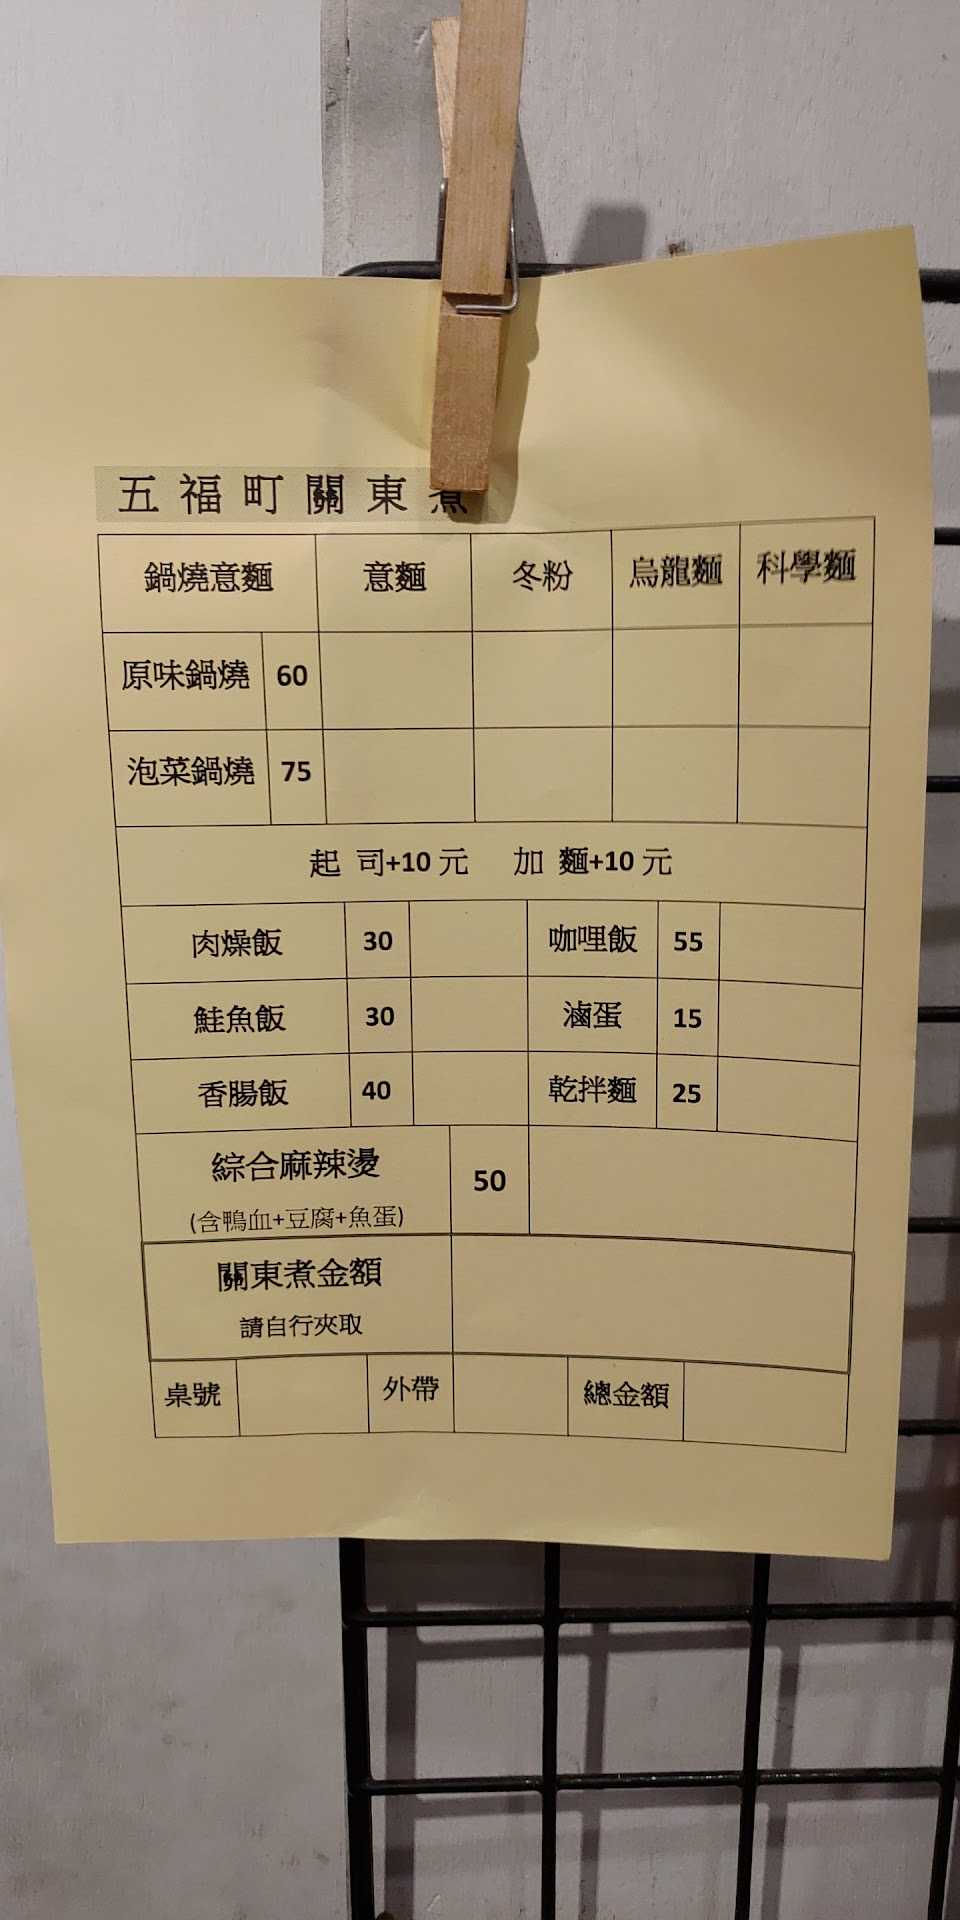 五福町關東煮
鍋燒意麵 意麵 冬粉 烏龍麵 科學麵
原味鍋燒 60
泡菜鍋燒 75
起司+10元 加麵+10元
肉燥飯 30 咖哩飯 55
鮭魚飯 30 滷蛋 15
香腸飯 40 乾拌麵 25
綜合麻辣燙 50
(含鴨血+豆腐+魚蛋)
關東煮金額
請自行夾取
桌號 外帶 總金額